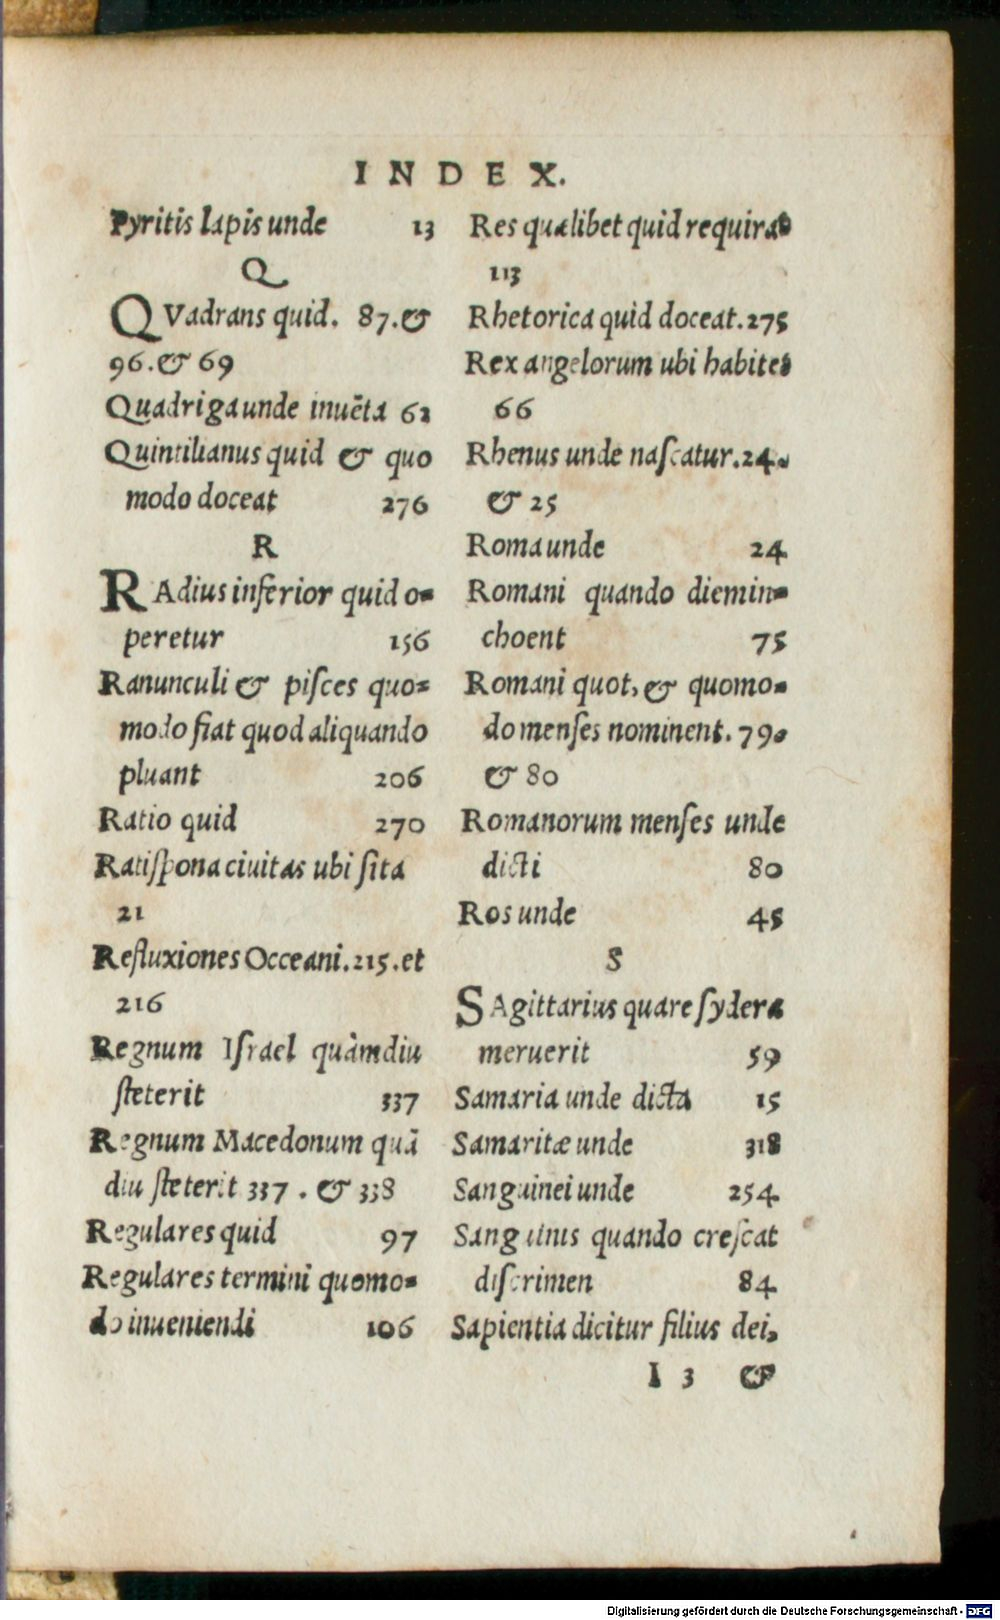 INDEX.
Pyritis lapis unde 13
Q
QVadrans quid. 87.&
96.& 69
Quadriga unde inuēta 62
Quintilianus quid & quo
modo doceat 276
R
RAdius inferior quid o=
peretur 156
Ranunculi & piſces quo=
modo fiat quod aliquando
pluant 206
Ratio quid 270
Ratiſpona ciuitas ubi ſita
21
Refluxiones Occeani.215.et
216
Regnum Iſrael quàmdiu
ſteterit 337
Regnum Macedonum quā
diu ſteterit 337 . & 338
Regulares quid 97
Regulares termini quomo=
do inueniendi 106
Res qualibet quid requirat
113
Rhetorica quid doceat.275
Rex angelorum ubi habitet
66
Rhenus unde naſcatur.24.
& 25
Roma unde 24
Romani quando diem in=
choent 75
Romani quot, & quomo=
do menſes nominent. 79.
& 80
Romanorum menſes unde
dicti 80
Ros unde 45
S
SAgittarius quare ſydera
meruerit 59
Samaria unde dicta 15
Samaritæ unde 318
Sanguinei unde 254
Sanguinis quando creſcat
diſcrimen 84
Sapientia dicitur filius dei,
I 3 &
Digitalisierung gefördert durch die Deutsche Forschungsgemeinschaft - DFG